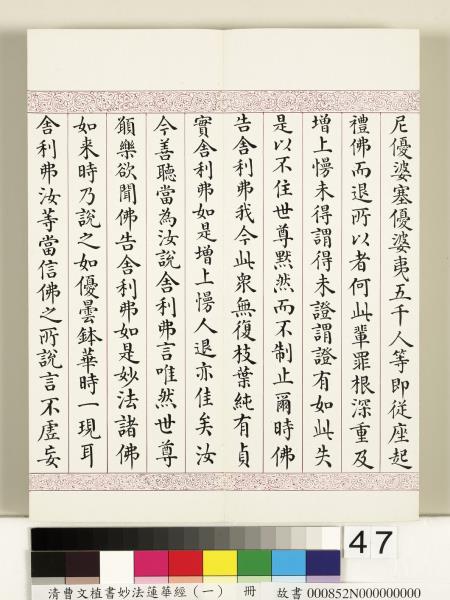 尼優婆塞優婆夷五千人等即従座起
禮佛而退所以者何此輩罪根深重及
增上慢未得謂得未證謂證有如此失
是以不住世尊默然而不制止爾時佛
告舍利弗我今此衆無復枝葉純有貞
實舍利弗如是增上慢人退亦佳矣汝
今善聽當為汝說舍利弗言唯然世尊
願樂欲聞佛告舍利弗如是妙法諸佛
如来時乃說之如優曇鉢華時一現耳
舍利弗汝等當信佛之所說言不虛妄
47
清曹文植書妙法蓮華經（一） 冊 故書 000852N000000000